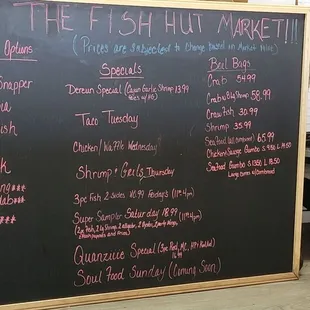 THE FISH HUT MARKET!!!
(Prices are subjected to change based on Market Price)
Options
Snapper
ia
ish
k
ng***
dab***
***
Specials
Dereun Special (Cajun Garlic Shrimp 13.99
Taco Tuesday
Chicken/Waffle Wednesday
Shrimp & Grits Thursday
3pc Fish 2 Sides 10.99 Fridays (11am-4pm)
Super Sampler Saturday 18.99 (11am-4pm)
Quanzuie Special
Soul Food Sunday (Coming Soon)
Boil Bags
Crab 54.99
Crab & 1/2 Shrimp 58.99
Crawfish 30.99
Shrimp 35.99
Seafood (all combined) 65.99
Chicken Sausage Gumbo
Seafood Gumbo